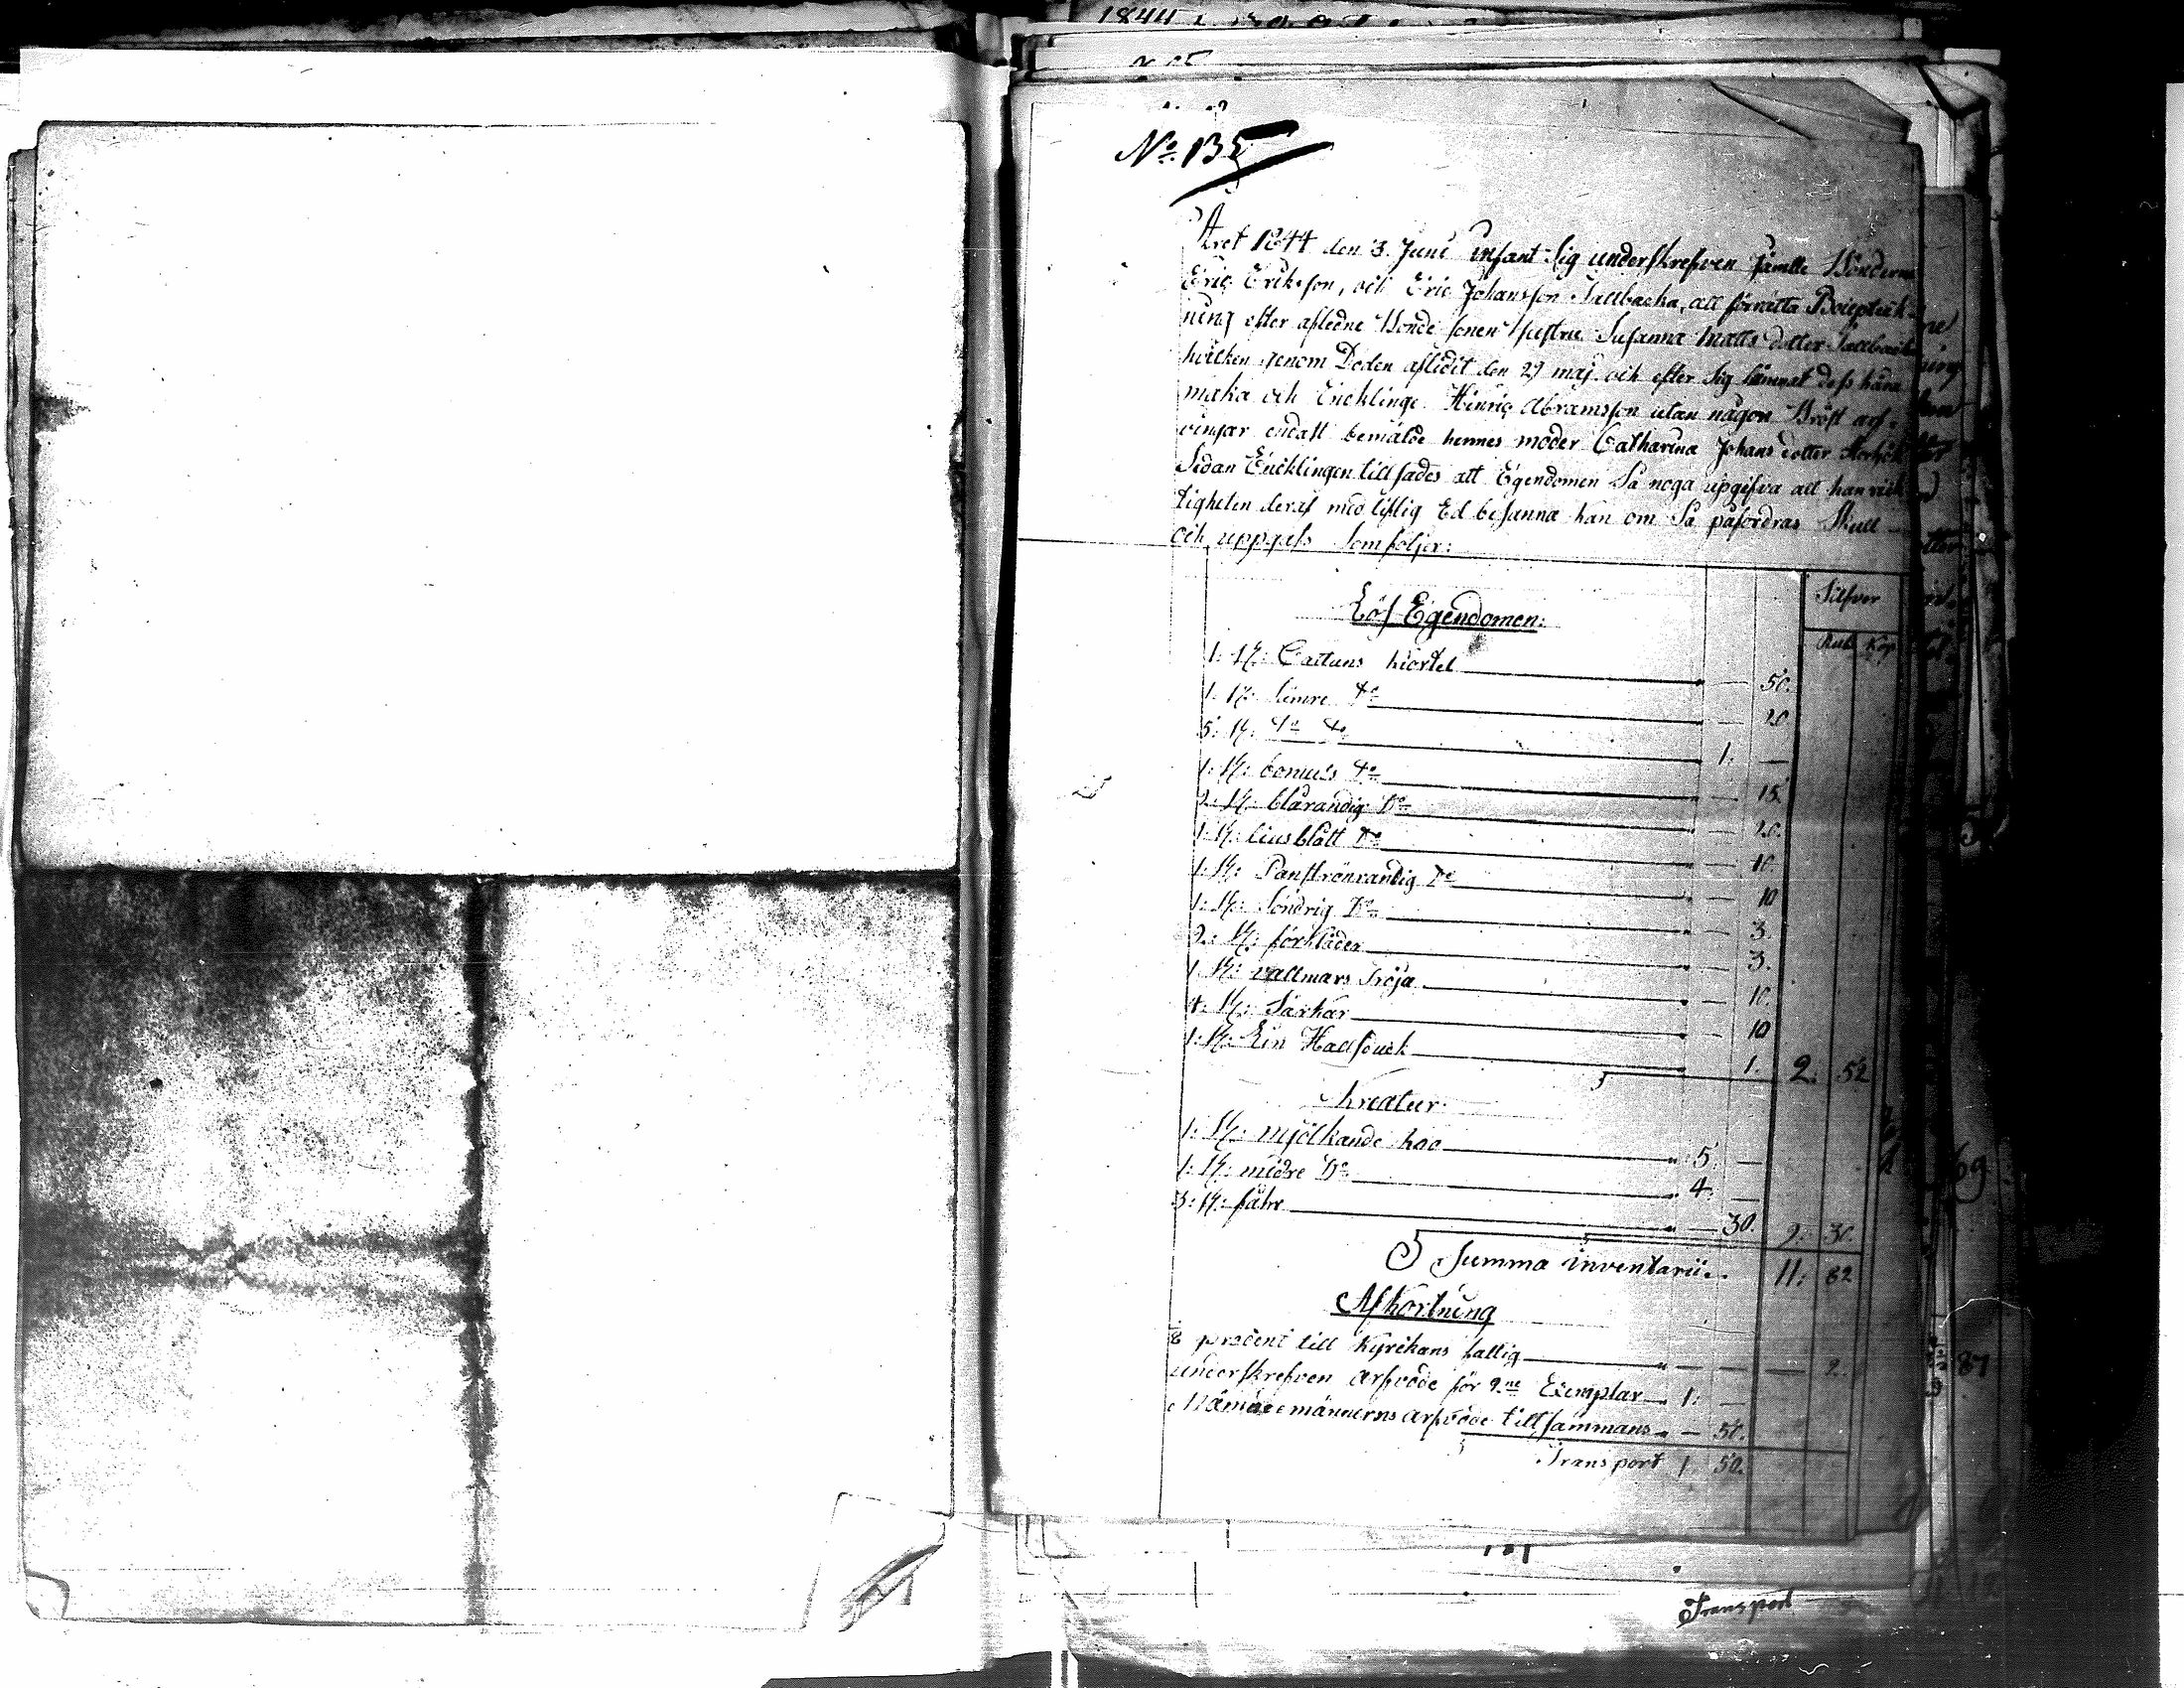 No. 135
Året 1844 den 3. Juni infant Sig underskrefven jämte Bönderne
Eric Eriksson, och Eric Johansson Tallbacka, att förrätta Boupteck-
ning efter afledne Bonde sonen Hustru Susanna Matts dotter Tallbacka
hvilken genom Döden aflidit den 29 maj och efter Sig lämnat dess kära
maka och Encklinge Hinric Abramsson utan någon Bröst arf-
vingar endast bemälde hennes moder Catharina Johans dotter
Sedan Encklingen tillsades att Egendomen Så noga upgifva att han rick
tigheten deraf med liflig Ed besanna kan om Så påfordras Skull
och uppgafs Som följer:
Silfver
Rub. Kop
Lös Egendomen:
1: St: Cattuns kiortel — 50.
1: St: Sämre do — 20
5: St: do do 1. —
1: St: bomuls do — 15.
2: St: blårandig Do — 20.
1: St: liusblått Do — 10.
1: St: Do — 10
1: St: Söndrig Do — 3.
2: St: förkläder — 3.
1: St: vallmars Tröja — 10.
4: St: Särkar — 10
1: St: Ein Hallsduck — 1. 2. 52
Kreatur
1: St: mjölkande koo 5. —
1: St: midre Do 4. —
3: St: fåhr — 30. 9. 30.
Summa inventarii. 11. 82
Afkortning
procent till Kyrckans fattig — — 2.
underskrefven arfvode för 2ne Exemplar 1: —
männerns arfvode tillsammans — 50.
Transport 1 50.
Transport